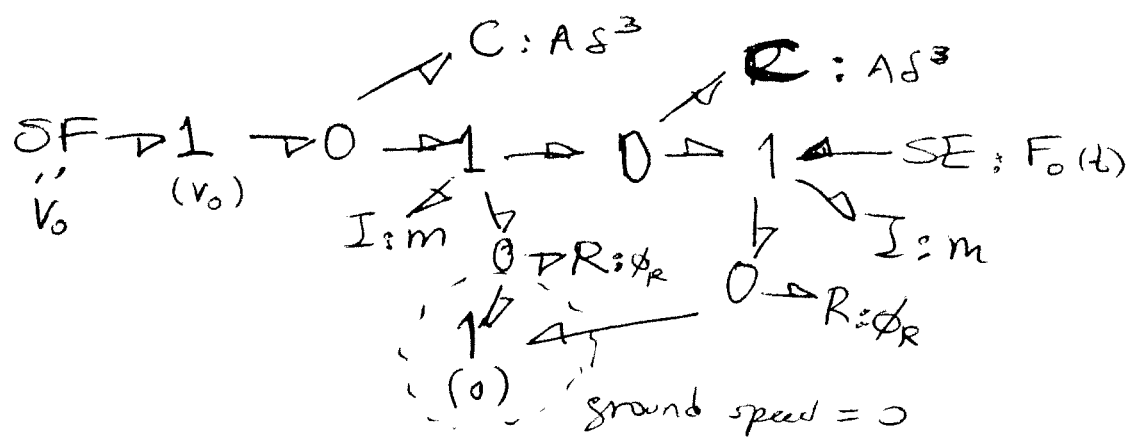 C : Aδ³
C : Aδ³
SF 1 0 1 0 1 SE : F₀(t)
V₀
(V₀)
I : m
I : m
0 R : ϕ_R
0 R : ϕ_R
1
(0)
ground speed = 0